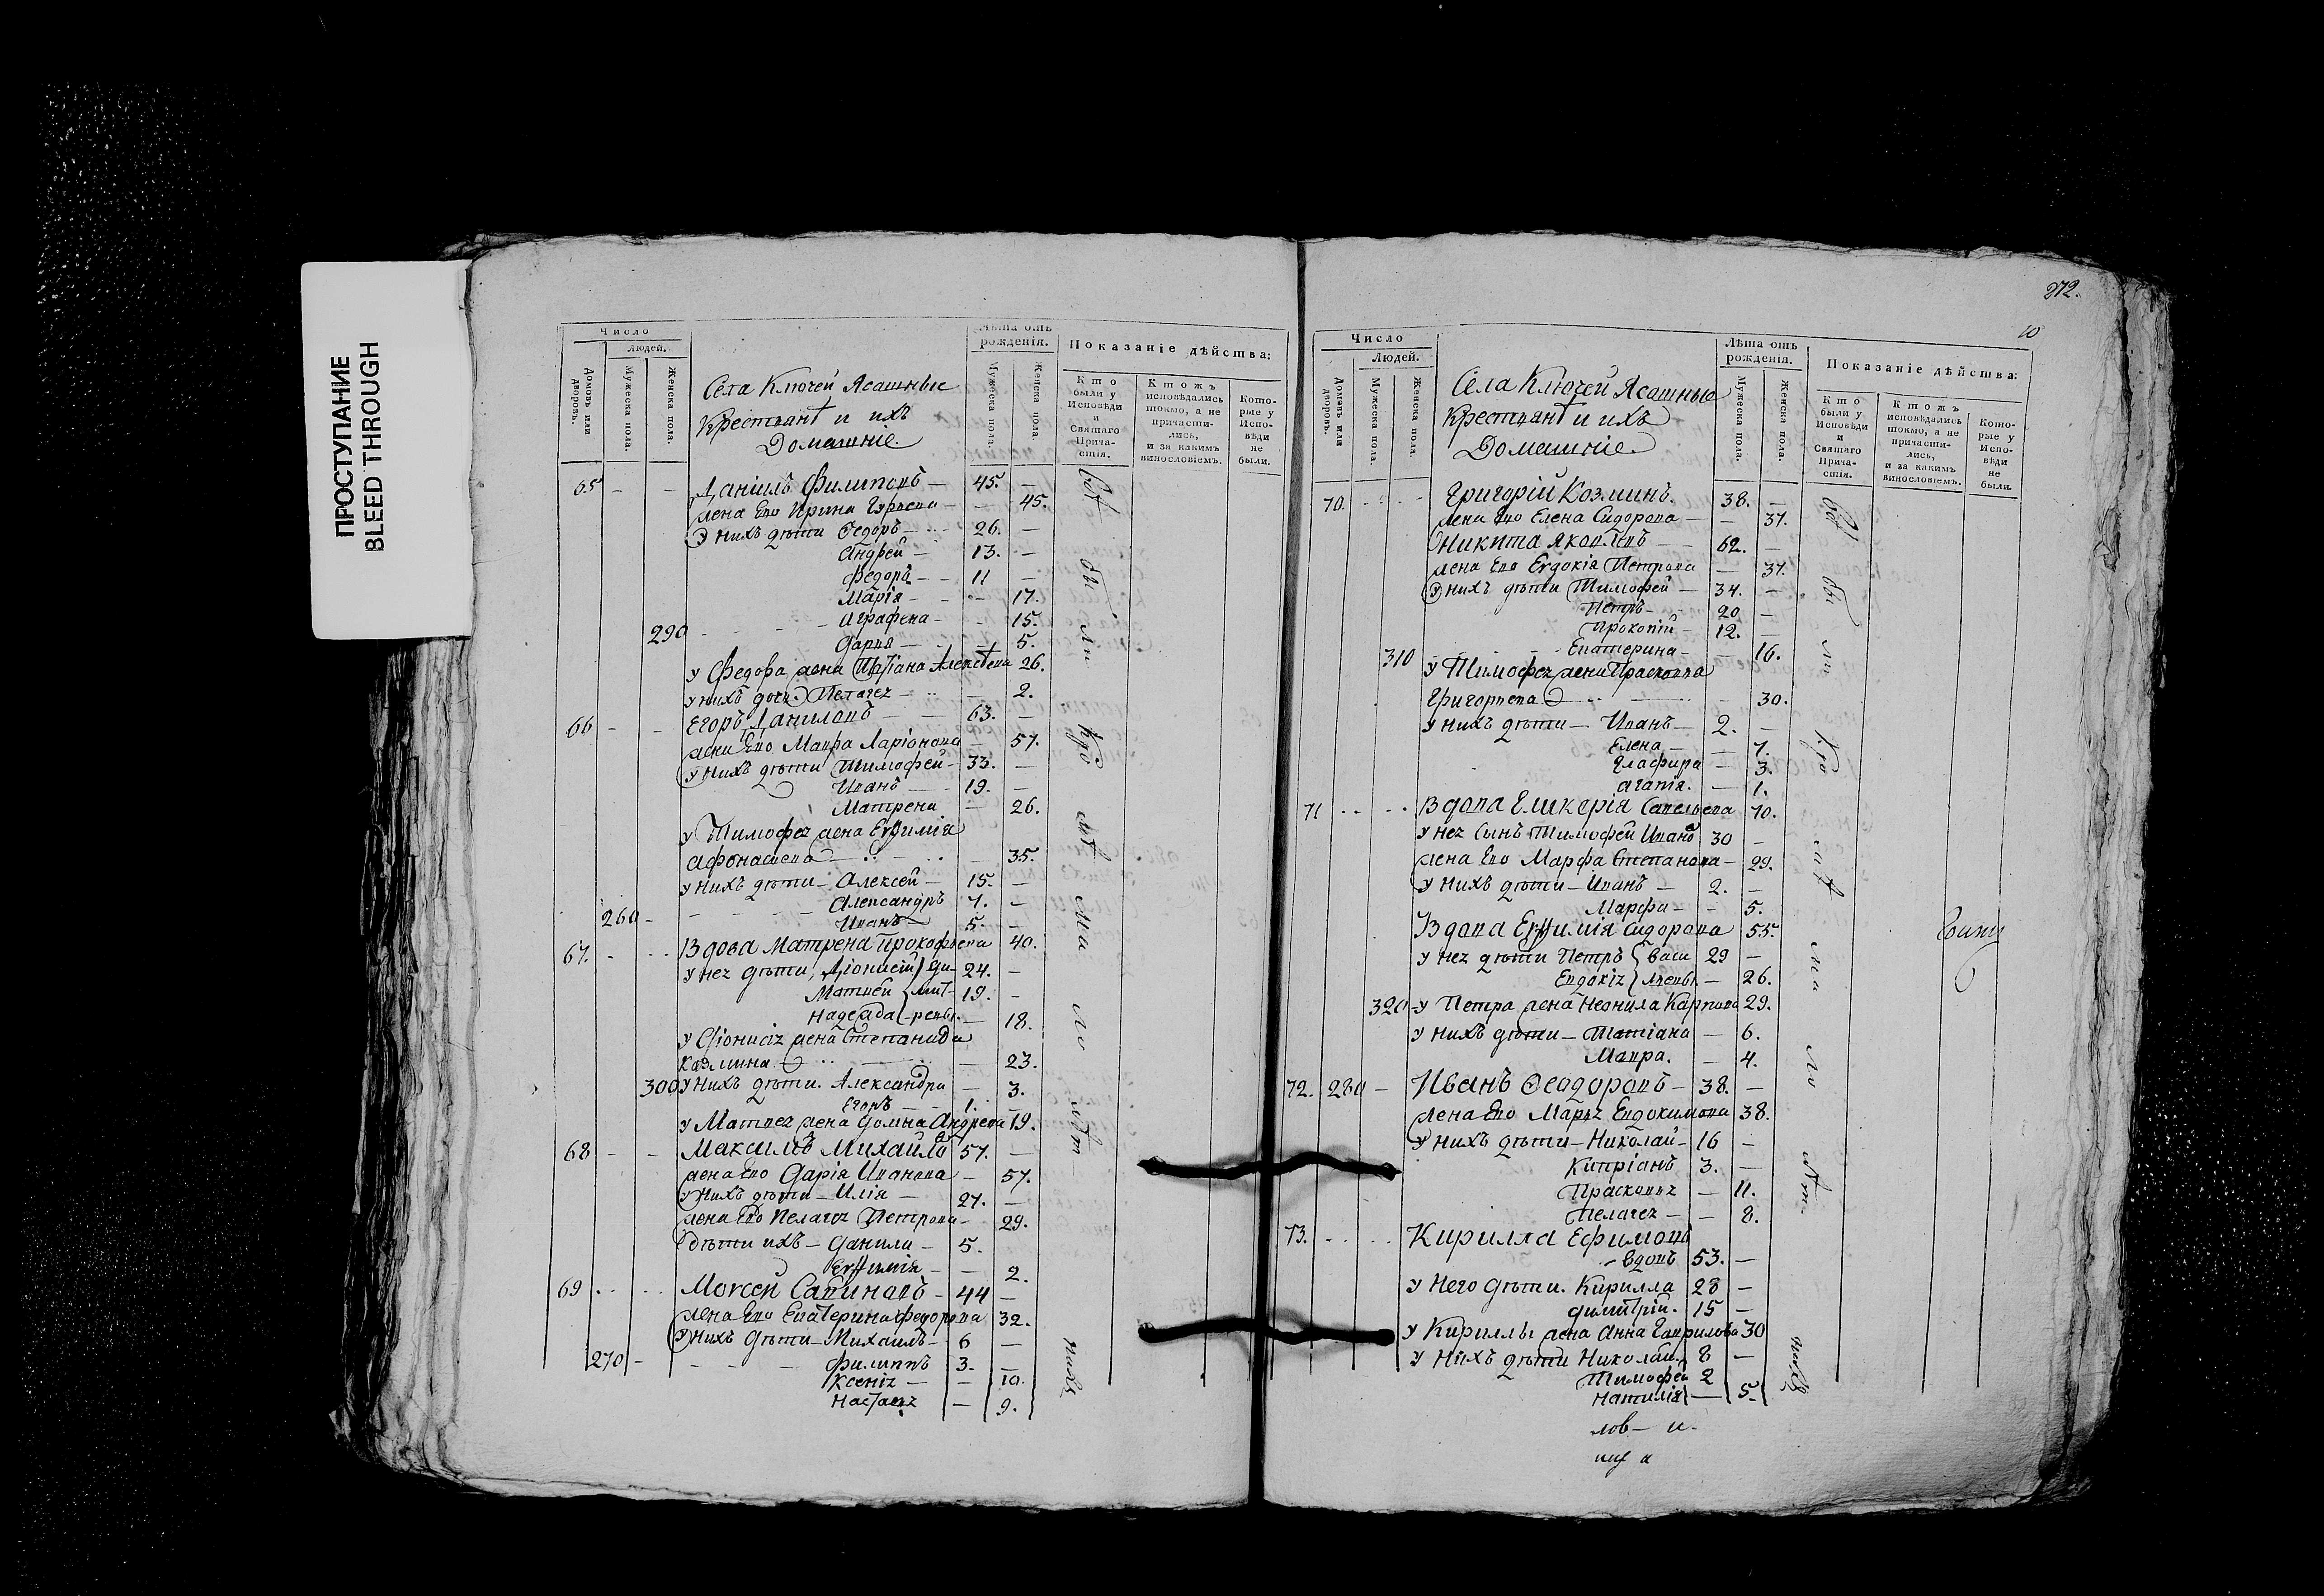 ПРОСТУПАНИЕ
BLEED THROUGH
Число
Людей.
Домовъ или дворовъ.
Мужеска пола.
Женска пола.
Села Ключей Ясашные
Крестьянѣ и ихъ
Домашніе.
Лѣта отъ рожденія.
Мужеска пола.
Женска пола.
Показаніе дѣйства:
Кто были у Исповѣди и Святаго Прича-стія.
Ктожъ исповѣдались токмо, а не причасти-лись, и за какимъ винословіемъ.
Кото-рые у Испо-вѣди не были.
65 - - Даніилъ Филиповъ - 45. -
жена Его Ирина - - 45.
У нихъ дѣти Ѳедоръ - 26. -
Андрей - 13. -
Федоръ - 11 -
Марія - - 17.
Аграфена - - 15.
290 Дарья - - 5.
у Федора жена Татіана Алексѣева 26.
у нихъ дочь Пелагея - - 2.
66 - - Егоръ Даниловъ - 63. -
жена Его Мавра Ларіонова 57.
у нихъ дѣти Тимофей - 33. -
Иванъ - 19. -
Матрена - 26.
у Тимофея жена Евфимія
Афонасьева - 35.
у нихъ дѣти - Алексей - 15. -
Александръ 7. -
260 - Иванъ - 5. -
67. - Вдова Матрена Прокофьева 40.
у нея дѣти, Діонисій 24. -
Матвей 19. -
Надежда - 18.
у Діонисія жена Степанида
Козмина - 23.
300 у нихъ дѣти. Александра - 3.
Егоръ - 1. -
у Матвея жена Домна Андреева 19.
68 - - Максимъ Михайловъ 57. -
жена Его Дарія Иванова - 57.
у нихъ дѣти - Илія - 27. -
жена Его Пелагея Петрова - 29.
дѣти ихъ - Данила - 5.
Евфимія - - 2.
69 Моисей Савиновъ - 44 -
жена Его Екатерина Федорова 32.
У нихъ дѣти - Михаилъ - 6 -
270 - Филиппъ 3. -
Ксенія - - 10.
Настасья - 9.
272.
10
Число
Людей.
Домовъ или дворовъ.
Мужеска пола.
Женска пола.
Села Ключей Ясашные
Крестьянѣ и ихъ
Домашніе.
Лѣта отъ рожденія.
Мужеска пола.
Женска пола.
Показаніе дѣйства:
Кто были у Исповѣди и Святаго Прича-стія.
Ктожъ исповѣдались токмо, а не причасти-лись, и за какимъ винословіемъ.
Кото-рые у Испо-вѣди не были.
70. Григорій Козминъ. 38. -
жена Его Елена Сидорова - - 37.
Никита Яковлевъ - 62. -
жена Его Евдокія Петрова - 37.
У нихъ дѣти Тимофей - 34. -
Петръ - 20 -
Прокопій - 12. -
310 Екатерина - - 16.
у Тимофея жена Прасковья
Григорьева - 30.
у нихъ дѣти - Иванъ - 2. -
Елена - - 7.
Глафира - 3.
Агапія. - 1.
71 Вдова Гликерія Савельева 70.
у нея сынъ Тимофей Ивановъ 30 -
жена Его Марфа Степанова - 29.
у нихъ дѣти - Иванъ - 2. -
Марфа - - 5.
Вдова Евфимія Сидорова 55.
у нея дѣти Петръ 29 -
Евдокія - 26.
320 - у Петра жена Неонила Карпова 29.
у нихъ дѣти - Татіана - 6.
Мавра. - 4.
72. 280 - Иванъ Ѳеодоровъ - 38. -
жена Его Марья Евдокимова 38.
У нихъ дѣти - Николай - 16 -
Кипріанъ 3. -
Прасковья - 11.
Пелагея - - 8.
73. Кирилла Ефимовъ
- вдовъ 53. -
у Него дѣти. Кирилла 28 -
Димитрій. 15 -
у Кириллы жена Анна Гаврилова 30
у нихъ дѣти Николай. 8 -
Тимофей 2
Наталія - 5.